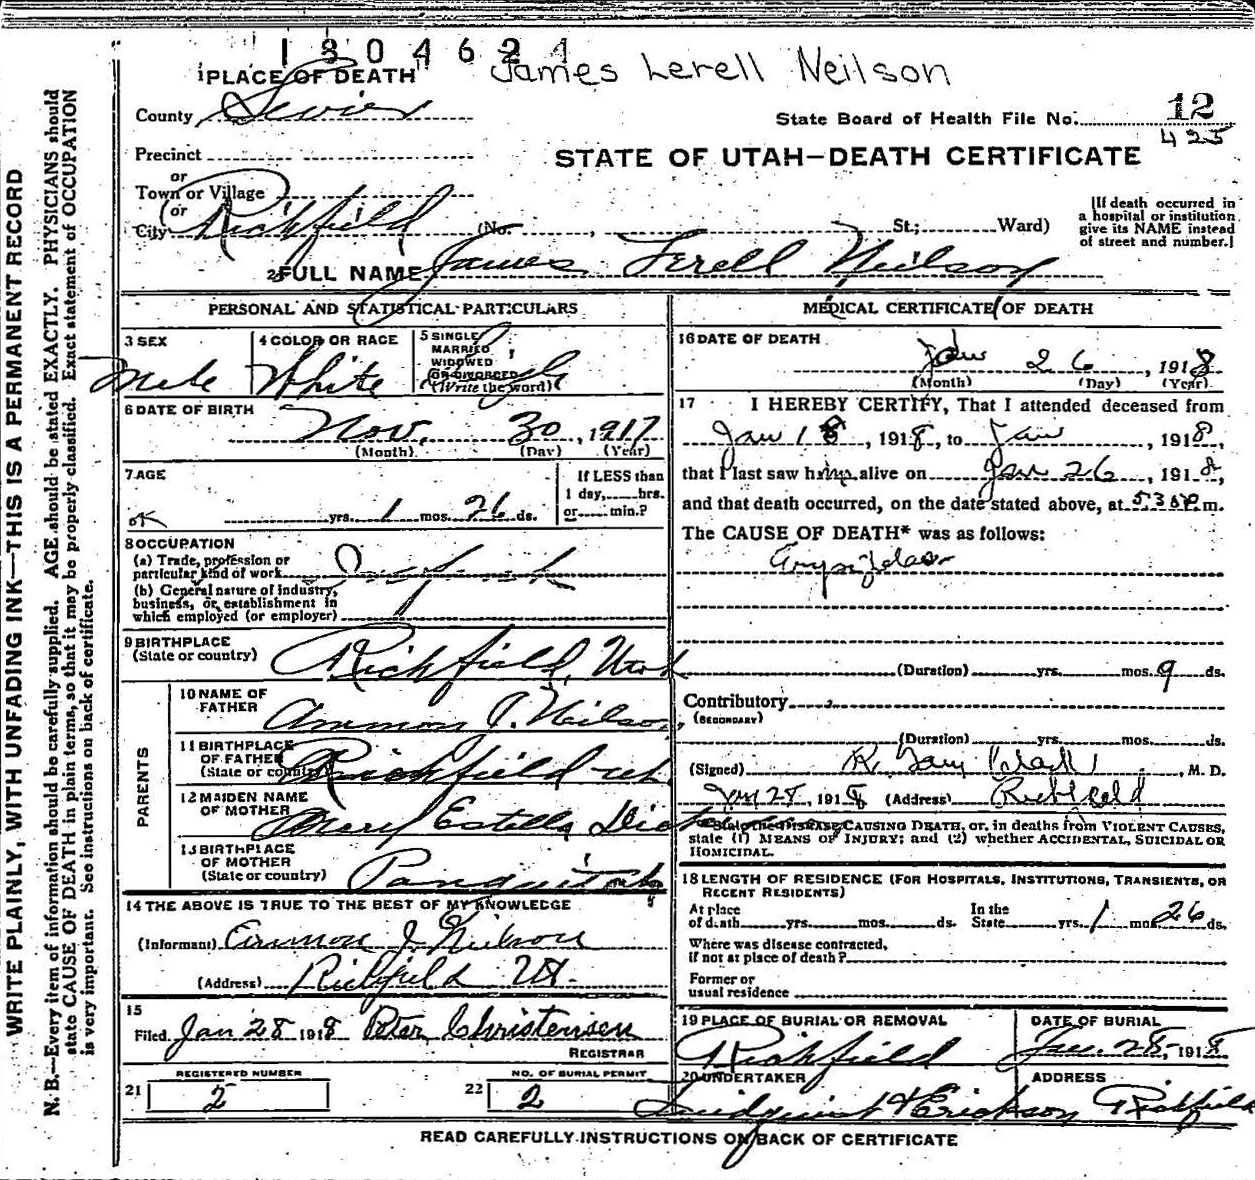 1804621
James Lerell Neilson
1 PLACE OF DEATH
County Sevier
State Board of Health File No. 12
425
Precinct
or
STATE OF UTAH—DEATH CERTIFICATE
Town or Village
or
City Richfield (No. , St.; Ward)
[If death occurred in
a hospital or institution
give its NAME instead
of street and number.]
2 FULL NAME James Lerell Neilson
WRITE PLAINLY, WITH UNFADING INK—THIS IS A PERMANENT RECORD
N. B.—Every item of information should be carefully supplied. AGE should be stated EXACTLY. PHYSICIANS should
state CAUSE OF DEATH in plain terms, so that it may be properly classified. Exact statement of OCCUPATION
is very important. See instructions on back of certificate.
PERSONAL AND STATISTICAL PARTICULARS
3 SEX
Male
4 COLOR OR RACE
White
5 SINGLE
MARRIED
WIDOWED
OR DIVORCED
(Write the word)
Single
6 DATE OF BIRTH
Nov. 30, 1917
(Month) (Day) (Year)
7 AGE
yrs. 1 mos. 26 ds.
If LESS than
1 day, hrs.
or min.?
8 OCCUPATION
(a) Trade, profession or
particular kind of work
(b) General nature of industry,
business, or establishment in
which employed (or employer)
9 BIRTHPLACE
(State or country) Richfield, Utah
PARENTS
10 NAME OF
FATHER Ammon J. Neilson
11 BIRTHPLACE
OF FATHER
(State or country) Richfield Utah
12 MAIDEN NAME
OF MOTHER Mary Estella
13 BIRTHPLACE
OF MOTHER
(State or country) Panguitch
14 THE ABOVE IS TRUE TO THE BEST OF MY KNOWLEDGE
(Informant) Ammon J. Neilson
(Address) Richfield Ut.
15
Filed Jan 28 1918 Peter Christensen
REGISTRAR
21 REGISTERED NUMBER
2
22 NO. OF BURIAL PERMIT
2
MEDICAL CERTIFICATE OF DEATH
16 DATE OF DEATH
Jan 26, 1918
(Month) (Day) (Year)
17 I HEREBY CERTIFY, That I attended deceased from
Jan 18, 1918, to Jan , 1918,
that I last saw him alive on Jan 26, 1918,
and that death occurred, on the date stated above, at 530 P m.
The CAUSE OF DEATH* was as follows:
Erysipelas
(Duration) yrs. mos. 9 ds.
Contributory
(SECONDARY)
(Duration) yrs. mos. ds.
(Signed) R. Gary Black, M. D.
Jan 28, 1918 (Address) Richfield
*State the DISEASE CAUSING DEATH, or, in deaths from VIOLENT CAUSES,
state (1) MEANS OF INJURY; and (2) whether ACCIDENTAL, SUICIDAL OR
HOMICIDAL.
18 LENGTH OF RESIDENCE (FOR HOSPITALS, INSTITUTIONS, TRANSIENTS, OR
RECENT RESIDENTS)
At place
of death yrs. mos. ds.
In the
State yrs. 1 mos. 26 ds.
Where was disease contracted,
if not at place of death?
Former or
usual residence
19 PLACE OF BURIAL OR REMOVAL
Richfield
DATE OF BURIAL
Jan. 28, 1918
20 UNDERTAKER
Lindquist & Erickson
ADDRESS
Richfield
READ CAREFULLY INSTRUCTIONS ON BACK OF CERTIFICATE